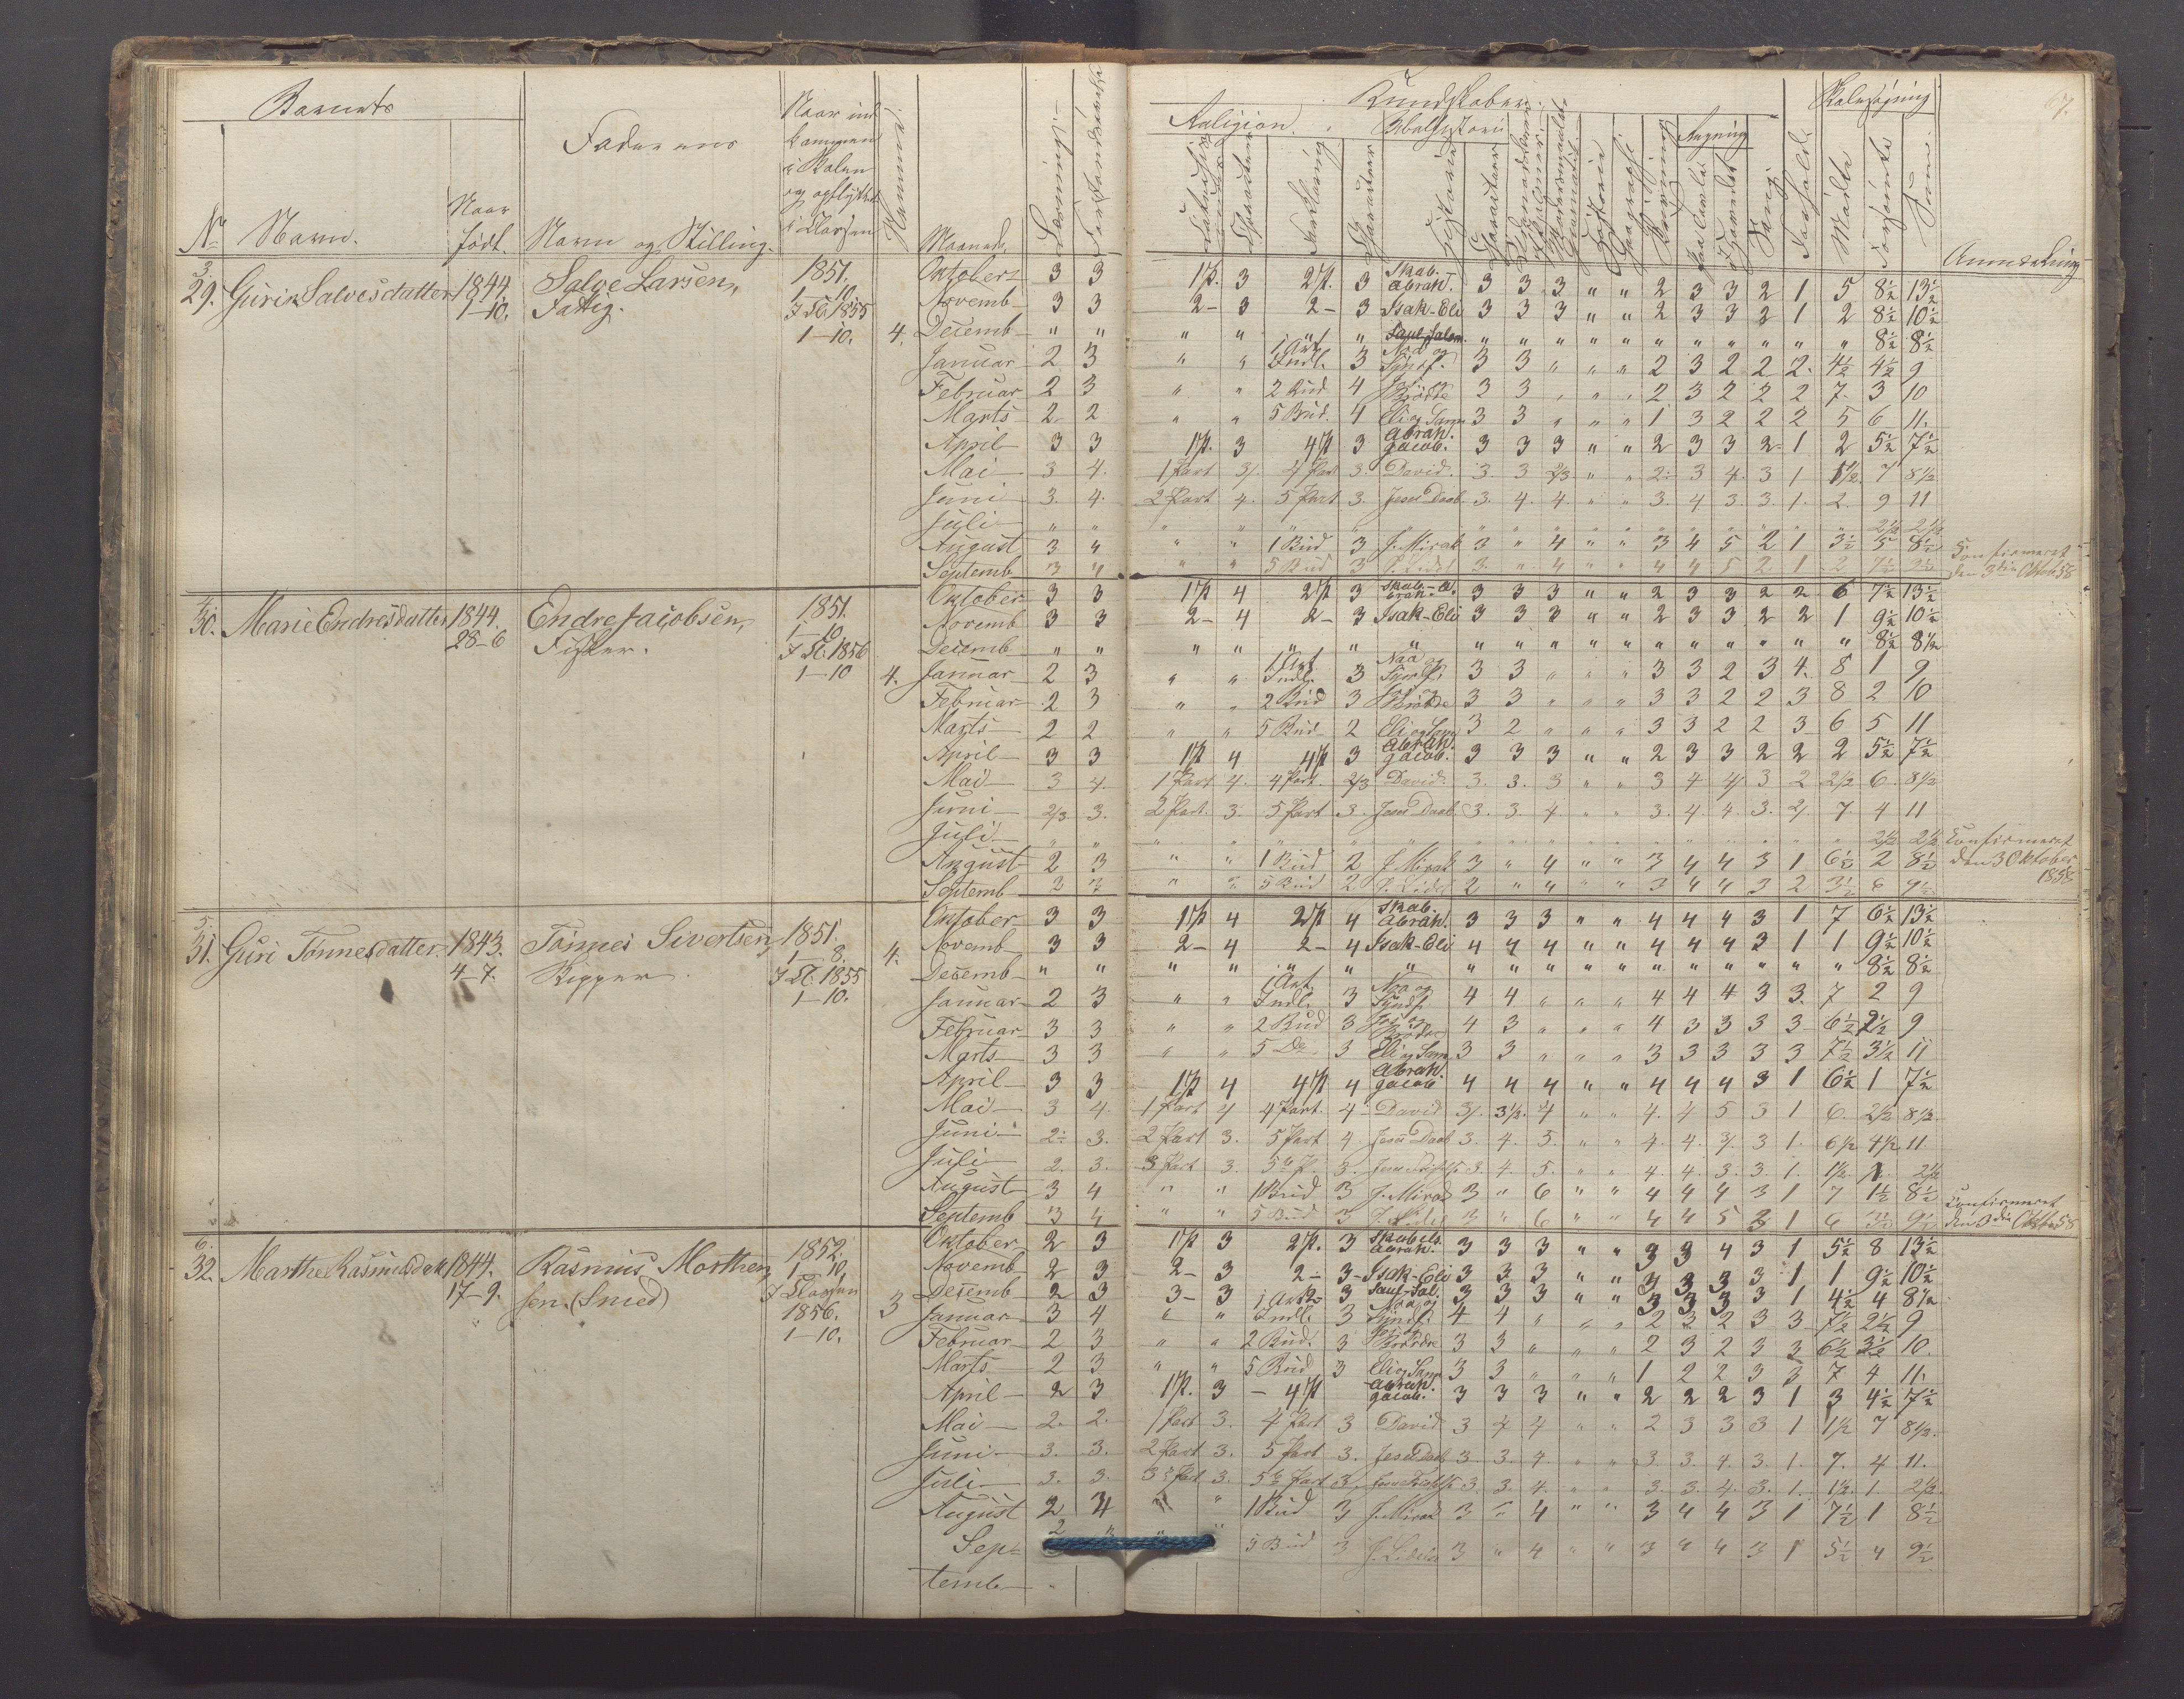 7.
Barnets
Faderens
Naar ind
kommen
i Skolen
og opflyttet
i Klassen
Kundskaber.
Religion.
Bibelhistorie
Regning
Skolesøgning
No Navn.
Naar
født.
Navn og Stilling.
Maaned.
Karakter
Forklaring
Karakter
Historie
Karakter
Historie
Geografi
Skrivning
Sang
Forhold
Mødte
Forsømte
Sum
Anmærkning
3.
29. Guri Salvesdatter 1844. Salve Larsen, 1851.
1-10. Fattig. 1-10.
I Kl. 1855
1-10. 4.
Oktober 3 3 1 P. 3 2 P. 3 Skab. Abrah. 3 3 3 " " 2 3 3 2 1 5 8½ 13½
Novemb 3 3 2- 3 2- 3 Isak-Eli 3 3 3 " " 2 3 3 2 1 2 8½ 10½
Decemb " " " " " " Saul-Salom. " " " " " " " " " " " 8½ 8½
Januar 2 3 " " 1 Art. Indl. 3 Noa og Syndf. 3 3 " " " 2 3 2 2 2. 4½ 4½ 9
Februar 2 3 " " 2 Bud 4 Jos. og Brødre 3 3 " " " 2 3 2 2 2 7 3 10
Marts 2 2 " " 5 Bud. 4 Eli og Sam 3 3 " " " 1 3 2 2 2 5 6 11.
April 3 3 1 P. 3 4 P 3 Abrah. Jacob. 3 3 3 " " 2 3 3 2 1 2 5½ 7½
Mai 3 4. 1 Part 3/. 4 Part 3. David. 3. 3 2/3 " " 2. 3 4. 3 1 1½ 7 8½
Juni 3. 4. 2 Part 4. 5 Part 3. Jesu Daab. 3. 4. 4. " " 3. 4 3. 3. 1. 2. 9 11
Juli " " " " " " " " " " " " " " " " " " 2½ 2½
August 3 4 " " 1 Bud 3 J. Mirak 3 " 4 " " 3 4 5 2 1 3½ 5 8½
Septemb 3 4 " " 5 Bud 3 J. Lidel 3 " 4 " " 4 4 5 2 1 2 7½ 9½
Confirmeret
den 3die Oktob 58
4.
30. Marie Endresdatter 1844. Endre Jacobsen, 1851.
28-6 Fisker. 1-10.
I Kl. 1856
1-10 4.
Oktober 3 3 1 P 4 2 P 3 Skab-el. Abrah. 3 3 3 " " 2 3 3 2 2 6 7½ 13½
Novemb 3 3 2- 4 2- 3 Isak-Eli 3 3 3 " " 2 3 3 2 2 1 9½ 10½
Decemb " " " " " " " " " " " " " " " " " " 8½ 8½
Januar 2 3 " " 1 Art. Indl. 3 Noa og Syndf. 3 3 " " " 3 3 2 3 4. 8 1 9
Februar 2 3 " " 2 Bud 3 Jos. og Brødre 3 3 " " " 3 3 2 2 3 8 2 10
Marts 2 2 " " 5 Bud 2 Eli og Sam 3 2 " " " 3 3 2 2 3 6 5 11
April 3 3 1 P 4 4 P 3 Abrah. Jacob. 3 3 3 " " 2 3 3 2 2 2 5½ 7½
Mai 3 4. 1 Part 4. 4 Part. 2/3 David. 3. 3. 3 " " 3 4 4/ 3 2 2½ 6. 8½
Juni 2/3 3. 2 Part. 3. 5 Part 3. Jesu Daab. 3. 3. 4. " " 3. 4. 4. 3. 2/. 7. 4 11
Juli " " " " " " " " " " " " " " " " " " 2½ 2½
August 2 3 " " 1 Bud 2 J. Mirak 3 " 4 " " 3 4 4 3 1 6½ 2 8½
Septemb 2 3 " " 5 Bud 2 J. Lidel 2 " 4 " " 3 4 4 3 2 3½ 6 9½
Confirmeret
den 3 Oktober
1858
5.
31. Guri Tønnesdatter. 1843. Tønnes Sivertsen, 1851.
4-7. Bigger. 1-8.
I Kl. 1855
1-10. 4.
Oktober 3 3 1 P 4 2 P 4 Skab. Abrah. 3 3 3 " " 4 4 4 3 1 7 6½ 13½
Novemb 3 3 2- 4 2- 4 Isak-Eli 4 4 4 " " 4 4 4 3 1 1 9½ 10½
Decemb " " " " " " " " " " " " " " " " " " 8½ 8½
Januar 2 3 " " 1 Art. Indl. 3 Noa og Syndf. 4 4 " " " 4 4 4 3 3. 7 2 9
Februar 3 3 " " 2 Bud 3 Jos. og Brødre 4 3 " " " 4 3 3 3 3 6½ 2½ 9
Marts 3 3 " " 5 Do. 3 Eli og Sam. 3 3 " " " 3 3 3 3 3 7½ 3½ 11
April 3 3 1 P 4 4 P 4 Abrah. Jacob 4 4 4 " " 4 4 4 3 1 6½ 1 7½
Mai 3 4. 1 Part 4 4 Part. 4. David 3/. 3½. 4 " " 4. 4 5 3 1 6. 2½ 8½.
Juni 2. 3. 2 Part 3. 5 Part 4. Jesu Daab 3. 4. 5. " " 4. 4. 3/. 3 1. 6½ 4½ 11
Juli 2. 3. 3 Part 3. 5te P. 3. 3. 4. 5. " " 4. 4. 3. 3. 1. 1½ 1. 2½
August 3 4 " " 1 Bud 3 J. Mirak 3 " 6 " " 4 4 4 3 1 7 1½ 8½
Septemb 3 4 " " 5 Bud 3 J. Lidel 3 " 6 " " 4 4 5 3 1 6 3½ 9½
Confirmeret
den 3die Oktob 58
6.
32. Marthe Rasmusdatt 1844. Rasmus Morthen- 1852.
17-9. sen. (Smed) 1-10.
I Klassen
1856.
1-10. 3
Oktober 2 3 1 P 3 2 P. 3 Skabels. Abrah. 3 3 3 " " 3 3 4 3 1 5½ 8 13½
Novemb 2 3 2- 3 2- 3 Isak-Eli 3 3 3 " " 3 3 3 3 1 1 9½ 10½
Decemb 2 3 3- 3 3 Saul-Sal. 3 3 3 " " 3 3 3 3 1 4½ 4 8½
Januar 3 4 " " 1 Art. Indl. 3 Noa og Syndf. 4 4 " " " 2 3 2 3 3 7½ 2½ 9
Februar 2 3 " " 2 Bud. 3 Jos. og Brødre 3 3 " " " 2 3 2 3 3 6½ 3½ 10.
Marts 2 3 " " 5 Bud 3 Eli og Sam 3 3 " " " 1 2 2 3 3 7 4 11.
April 2 3 1 P. 3 - 4 P Abrah. Jacob. 3 3 3 " " 2 2 2 3 1 3 4½ 7½
Mai 2. 2. 1 Part 3. 4 Part 3 David 3 4 4 " " 2 3 3 3 1 1½ 7 8½.
Juni 3. 3. 2 Part 3. 5 Part 3. Jesu Daab 3. 3. 4 " " 3. 3. 4. 3. 1. 7. 4 11.
Juli 3. 3. 3 Part 3. 5te Part 3/. 3. 3. 4. " " 3. 3. 4. 3. 1. 1½. 1. 2½.
August 2 4 " " 1 Bud 3 J. Mirak 3 " 4 " " 3 4 4 3 1 7½ 1 8½
Sep- 2 " " " 5 Bud 3 J. Lidel 3 " 4 " " 3 4 4 3 1 5½ 4 9½
temb